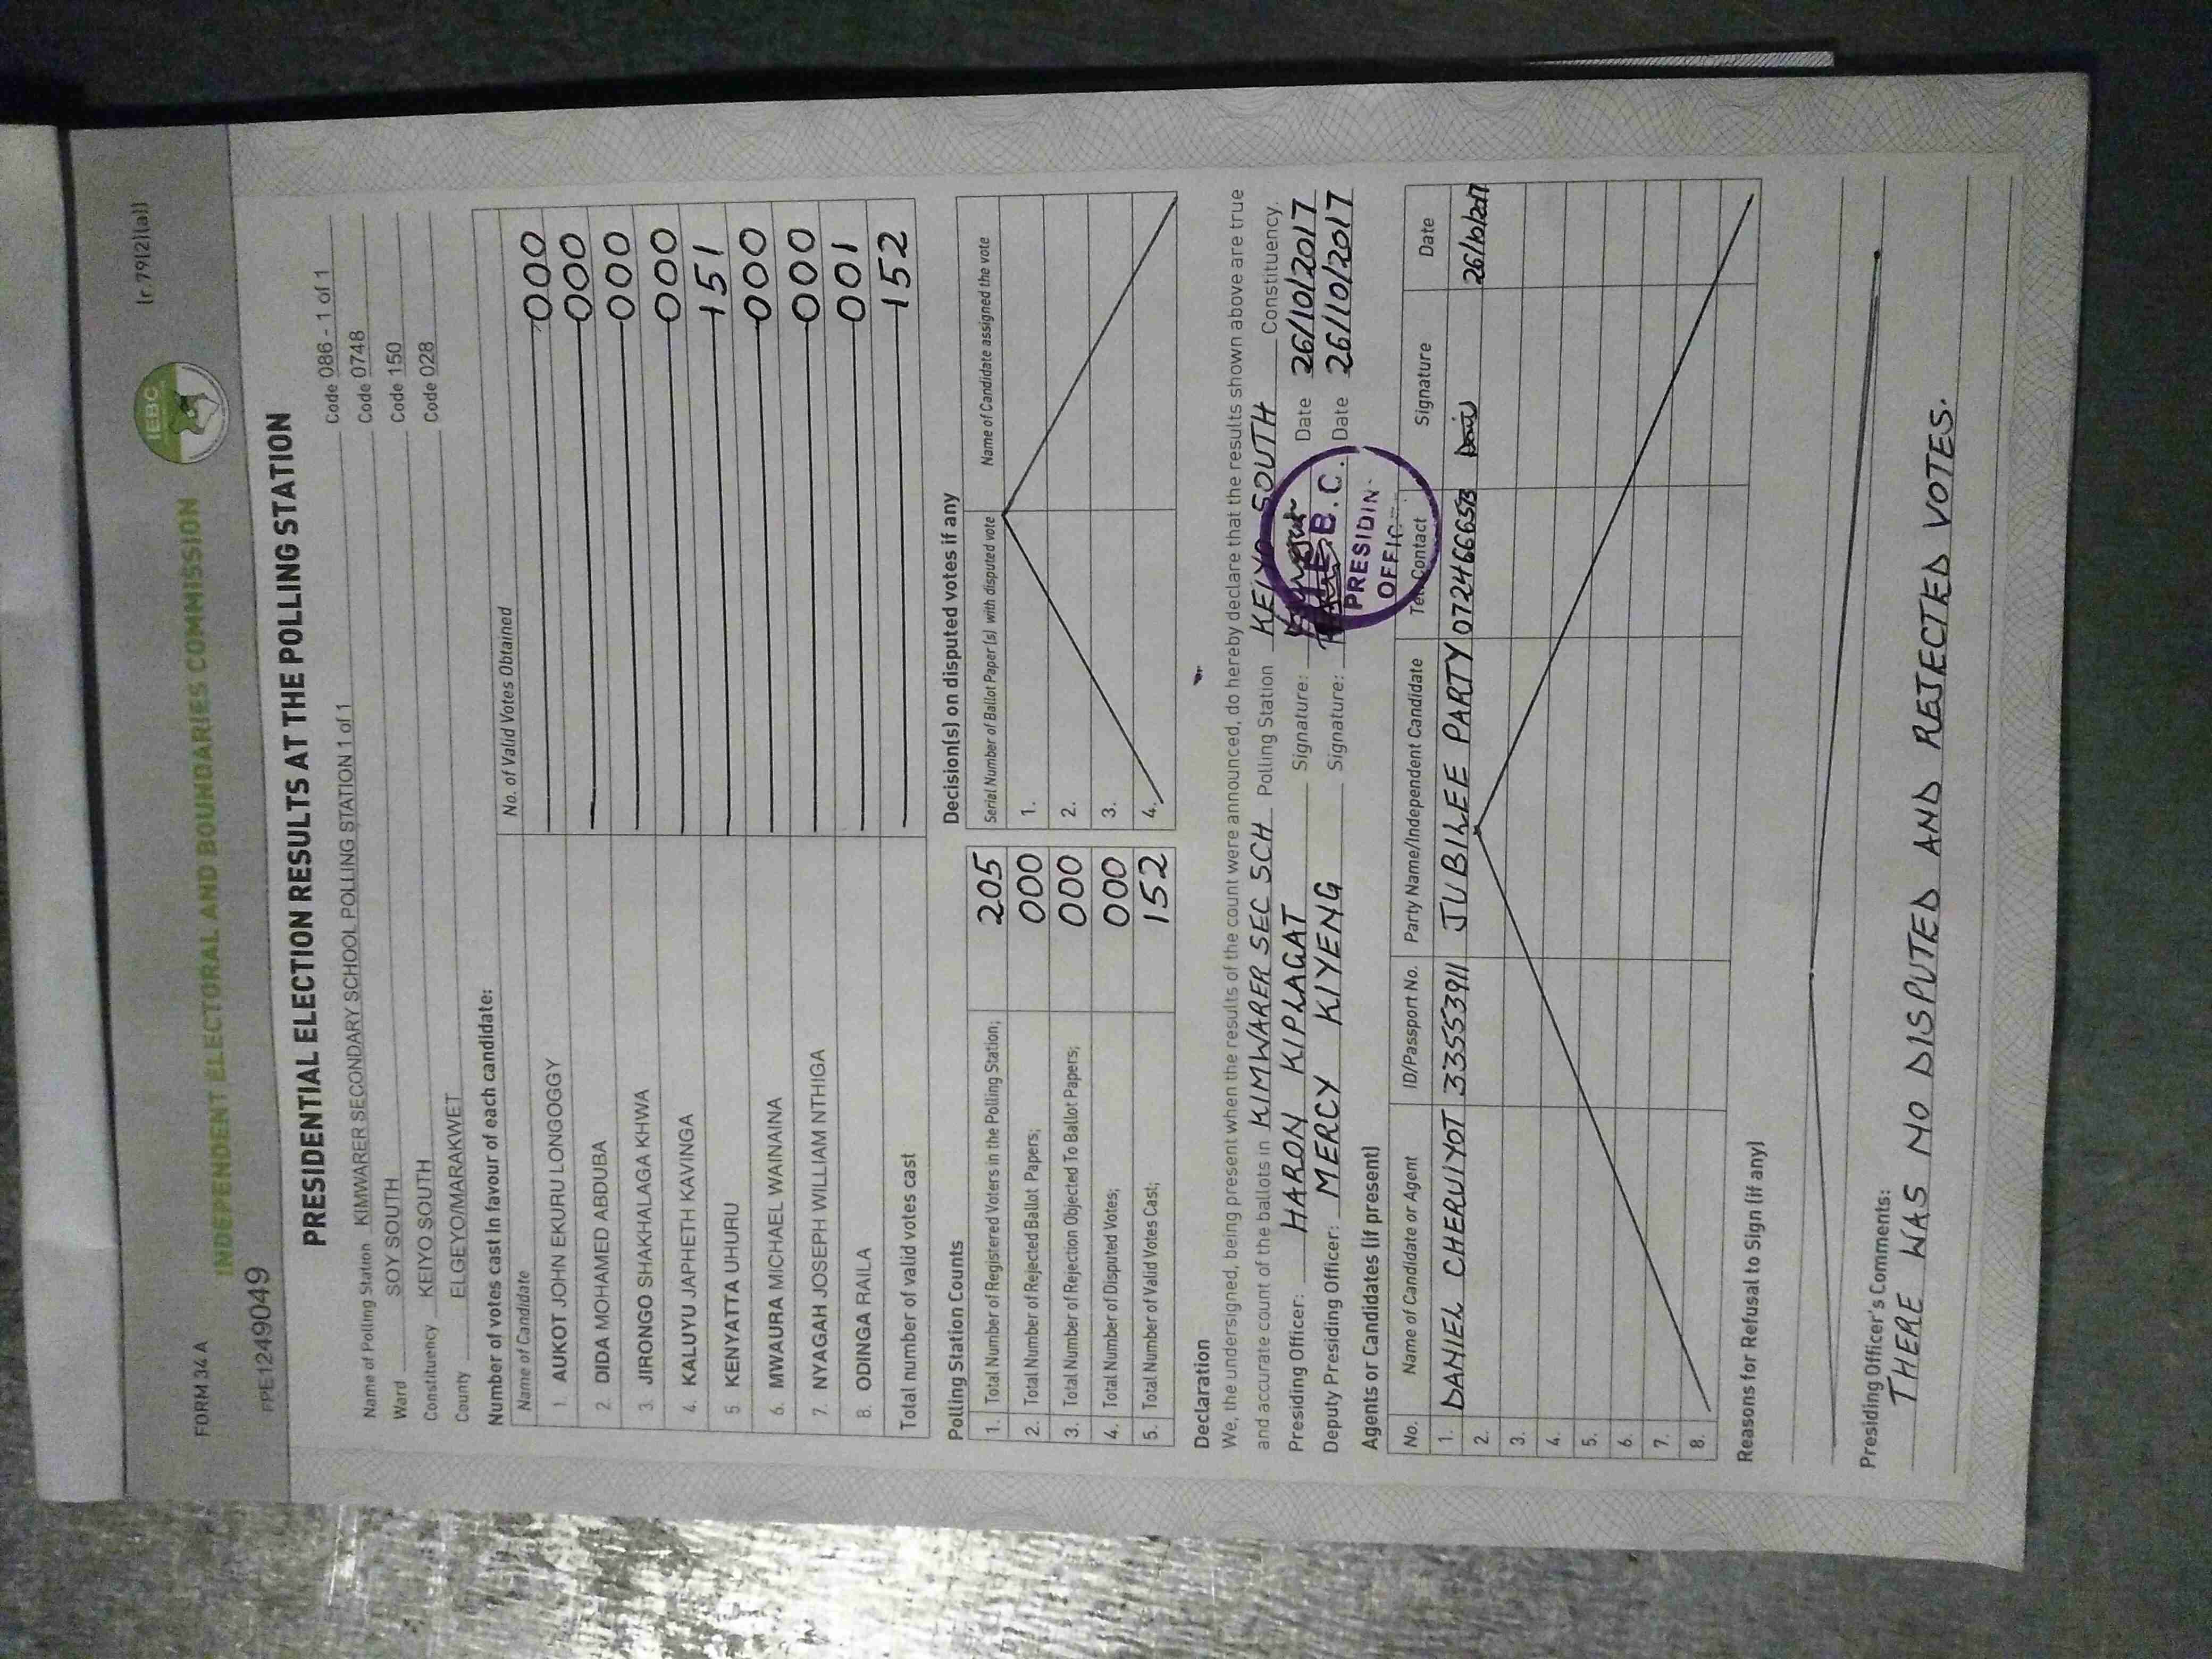 FORM 34 A
(r.79(2)(a))
IEBC
INDEPENDENT ELECTORAL AND BOUNDARIES COMMISSION
PPE1249049
PRESIDENTIAL ELECTION RESULTS AT THE POLLING STATION
Name of Polling Station KIMWARER SECONDARY SCHOOL POLLING STATION 1 of 1 Code 086 - 1 of 1
Ward SOY SOUTH Code 0748
Constituency KEIYO SOUTH Code 150
County ELGEYO/MARAKWET Code 028
Number of votes cast in favour of each candidate:
Name of Candidate No. of Valid Votes Obtained
1. AUKOT JOHN EKURU LONGOGGY 000
2. DIDA MOHAMED ABDUBA 000
3. JIRONGO SHAKHALAGA KHWA 000
4. KALUYU JAPHETH KAVINGA 000
5 KENYATTA UHURU 151
6. MWAURA MICHAEL WAINAINA 000
7. NYAGAH JOSEPH WILLIAM NTHIGA 000
8. ODINGA RAILA 001
Total number of valid votes cast 152
Polling Station Counts
1. Total Number of Registered Voters in the Polling Station; 205
2. Total Number of Rejected Ballot Papers; 000
3. Total Number of Rejection Objected To Ballot Papers; 000
4. Total Number of Disputed Votes; 000
5. Total Number of Valid Votes Cast; 152
Decision(s) on disputed votes if any
Serial Number of Ballot Paper (s) with disputed vote Name of Candidate assigned the vote
1.
2.
3.
4.
Declaration
We, the undersigned, being present when the results of the count were announced, do hereby declare that the results shown above are true
and accurate count of the ballots in KIMWARER SEC SCH Polling Station KEIYO SOUTH Constituency.
Presiding Officer: HARON KIPLAGAT Signature: Date 26/10/2017
Deputy Presiding Officer: MERCY KIYENG Signature: Date 26/10/2017
I.E.B.C.
PRESIDIN
OFFIC
Agents or Candidates (if present)
No. Name of Candidate or Agent ID/Passport No. Party Name/Independent Candidate Tel. Contact Signature Date
1. DANIEL CHERUIYOT 33553911 JUBILEE PARTY 26/10/2017
2.
3.
4.
5.
6.
7.
8.
Reasons for Refusal to Sign (if any)
Presiding Officer's Comments:
THERE WAS NO DISPUTED AND REJECTED VOTES.